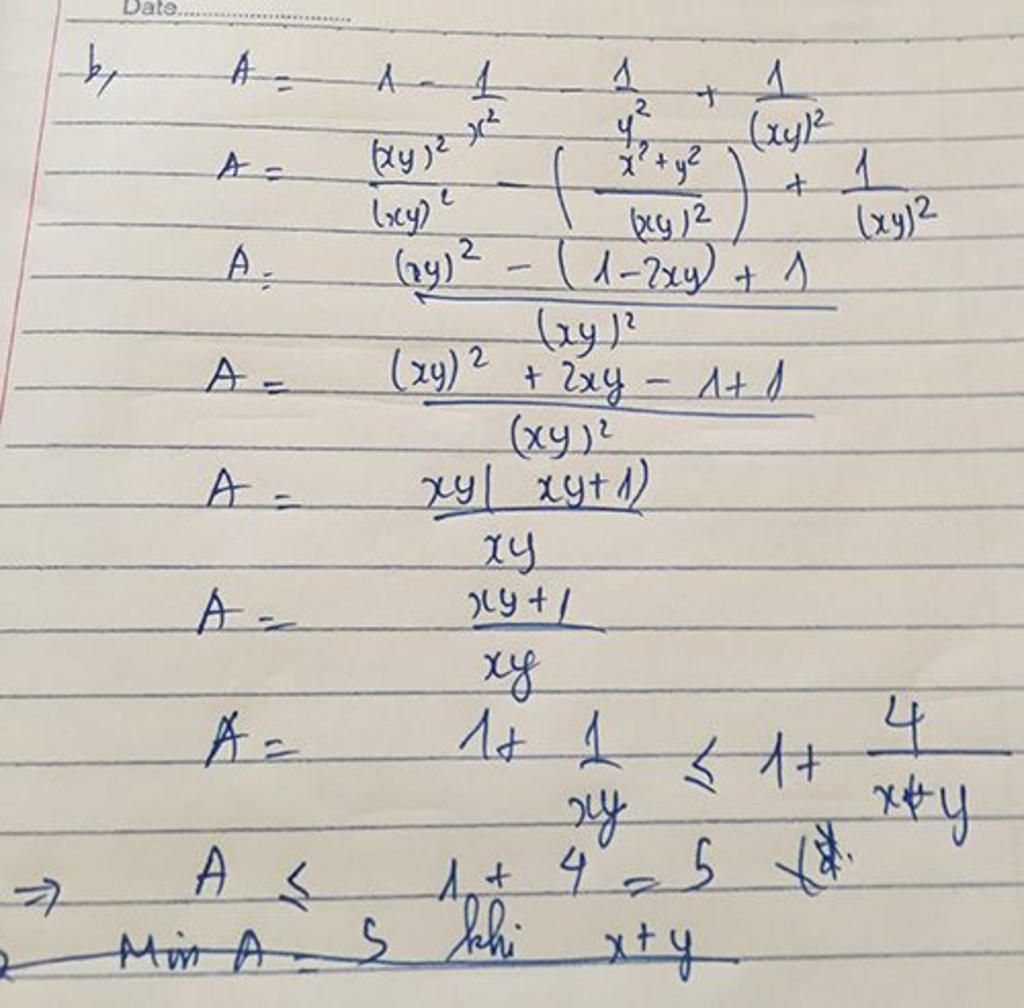 Date
b, A = 1 - 1/x² - 1/y² + 1/(xy)²
A = (xy)²/(xy)² - ((x² + y²)/(xy)²) + 1/(xy)²
A = ((xy)² - (1 - 2xy) + 1)/(xy)²
A = ((xy)² + 2xy - 1 + 1)/(xy)²
A = xy( xy+1)/xy
A = (xy+1)/xy
A = 1 + 1/xy ≤ 1 + 4/(x+y)
=> A ≤ 1 + 4 = 5
Min A = 5 khi x+y